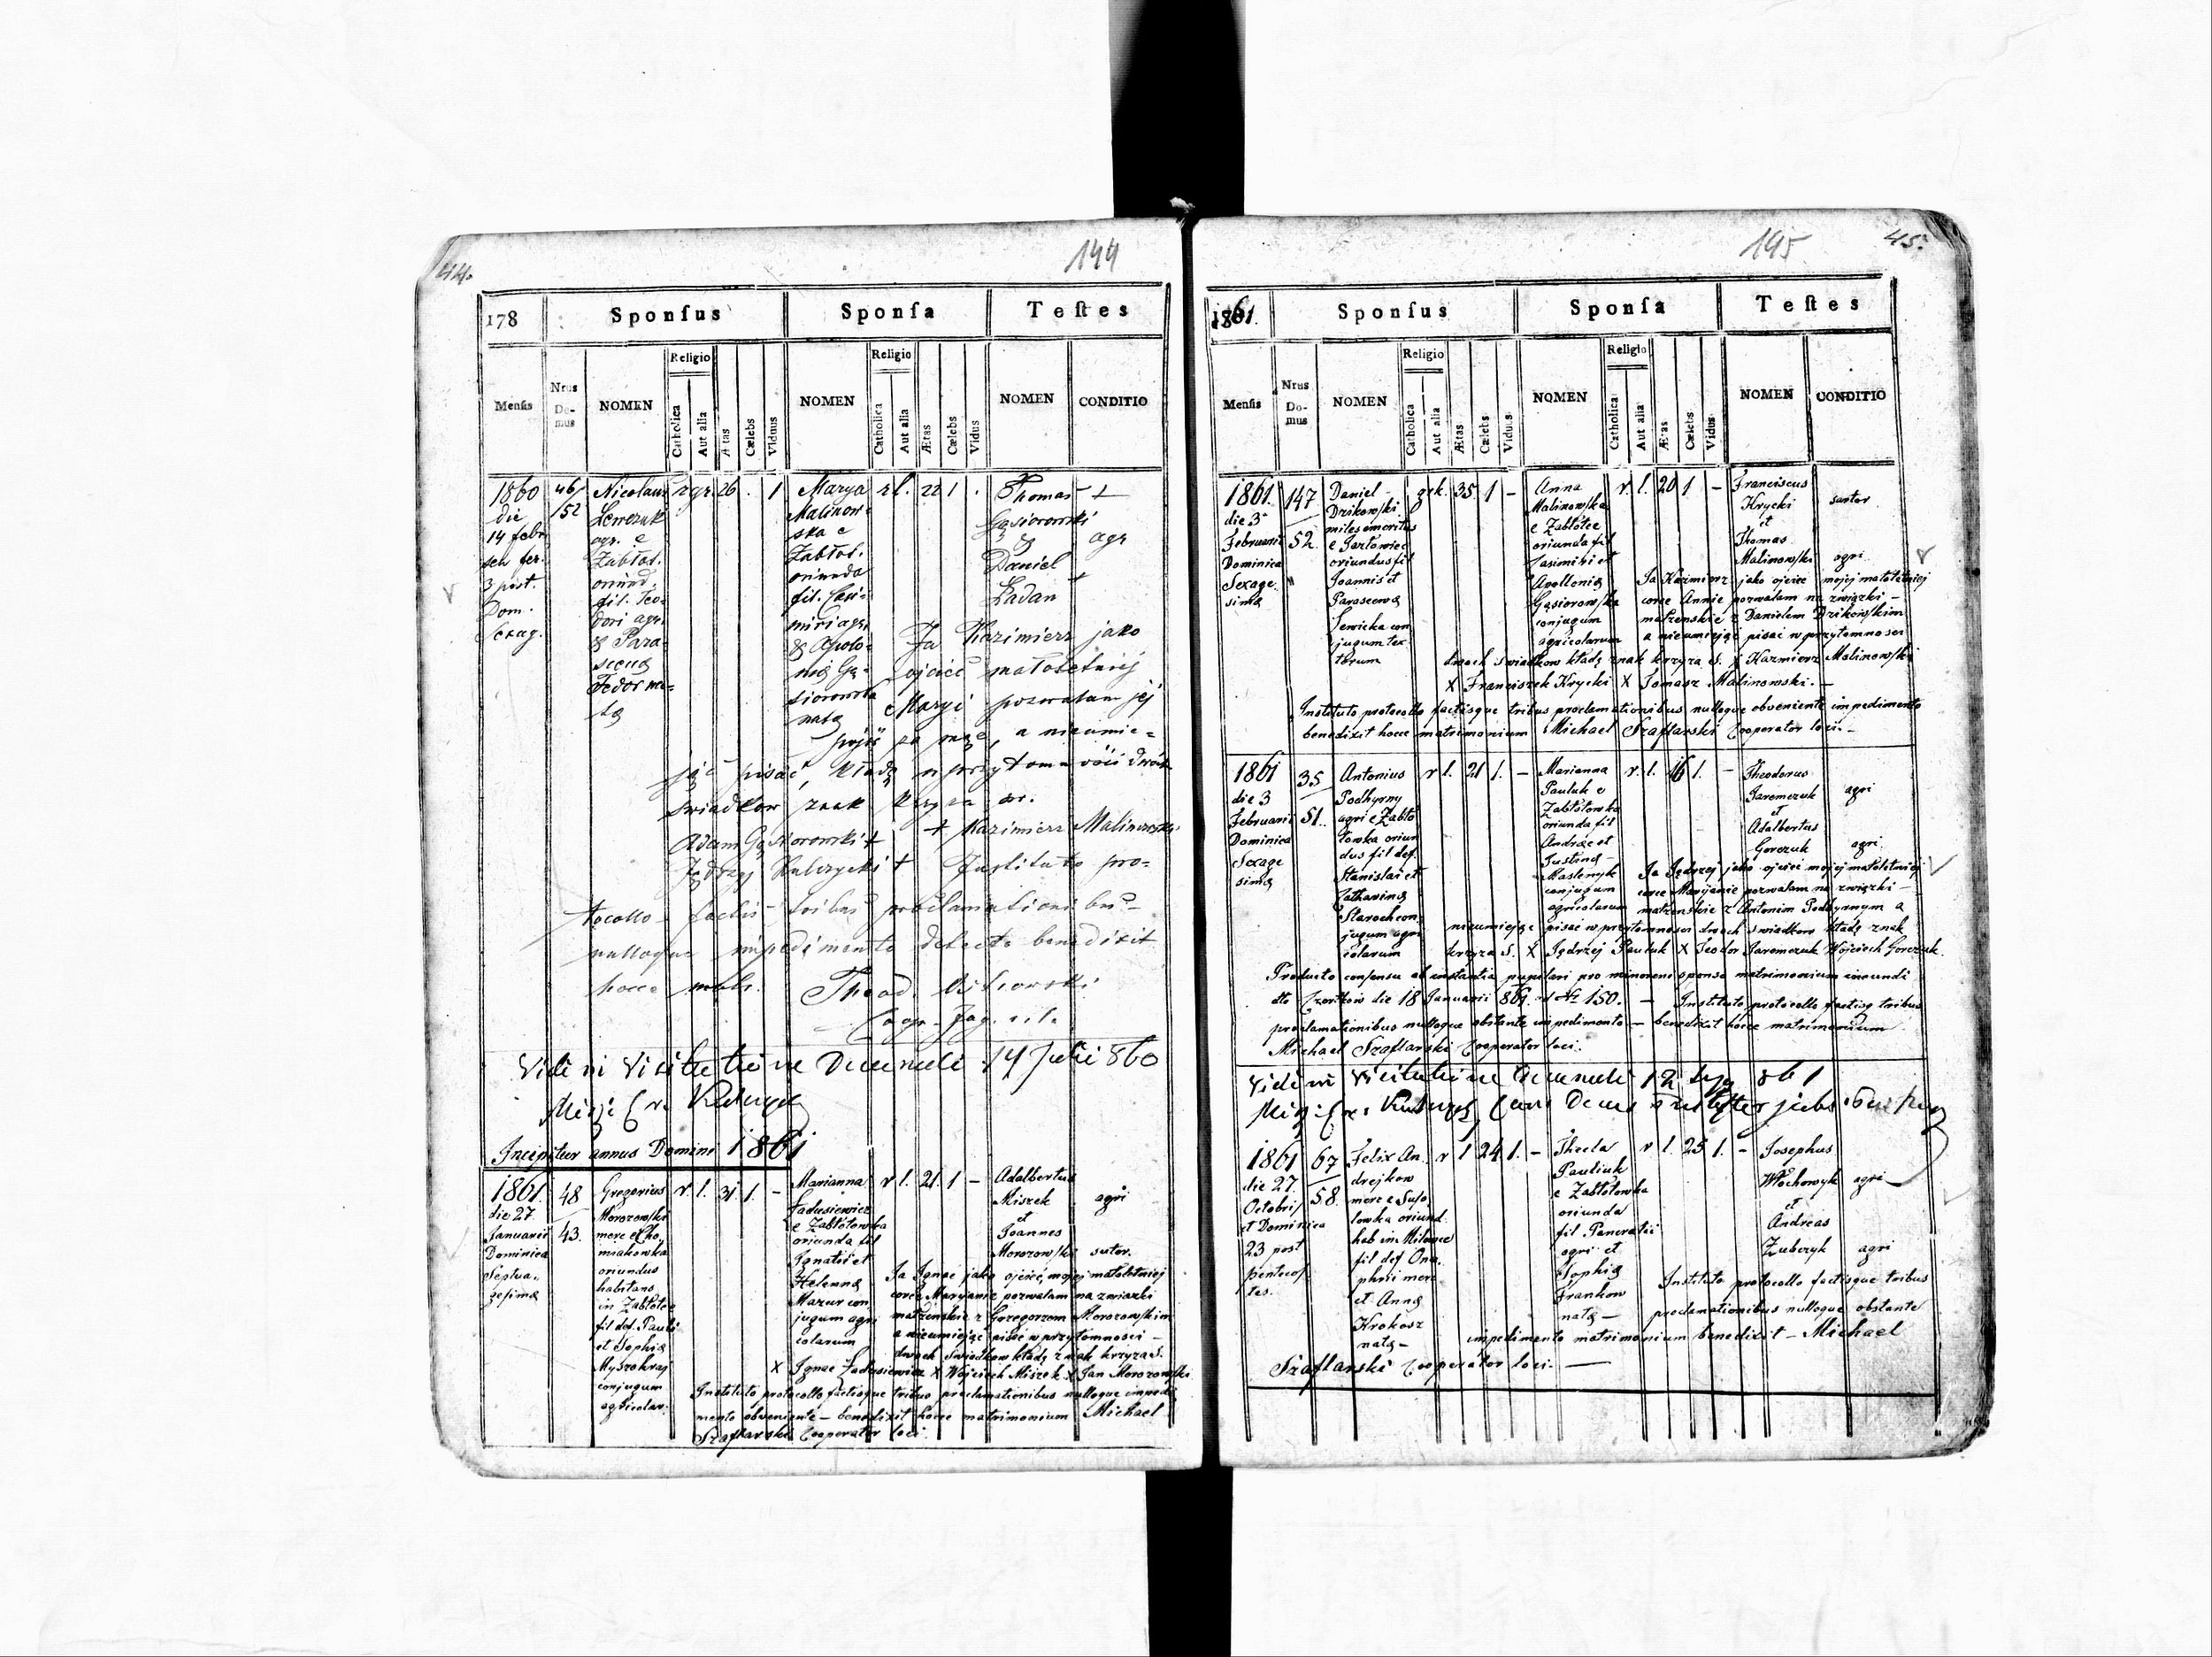 44.
144
178
Sponſus
Sponſa
Teſtes
Menſis
Nrus Do-mus
NOMEN
Religio
Catholica
Aut alia
Ætas
Cælebs
Viduus
NOMEN
Religio
Catholica
Aut alia
Ætas
Cælebs
Vidua
NOMEN
CONDITIO
1860
die
14 febr
seu fer.
3 post.
Dom.
Sexag.
46/
152
Nicolaus
Lewczuk
agr. e
Zabłot.
oriund.
fil. Teo-
dori agr.
& Para-
scevæ
Fedor na-
tæ
r gr. 26 . 1
Marya
Malinow-
ska e
Zabłot.
oriunda
fil. Casi-
miri agr.
& Apolo-
niæ Gą-
siorowska
natæ
r l. 22 1 .
Thomas +
Gąsiorowski
&
agr
Daniel
Ładan +
Ja Kazimierz jako
ojciec małoletniej
Maryi pozwalam jej
pojść za mąż, a nieumie-
jąc pisać, kładę w przytomności dwóch
świadków znak krzyża św.
+ Kazimierz Malinowski
Adam Gąsiorowski +
Jędrzej +
Instituto pro-
tocollo factis tribus proclamationibus
nulloque impedimento detecto benedixit
hocce matr.
Theod.
Vidi in Visitatione Decanali 14 Julii 860
Incipitur annus Domini 1861
1861
die 27
Januarii
Dominica
Septua-
gesima
48
43.
Gregorius
Morozowski
oriundus
habitans
in Zabłotce
fil. def. Pauli
et Sophiæ
conjugum
agricolar.
r. l. 31 1. -
Marianna
Ładusiewicz
e Zabłotowka
oriunda fil
Ignatii et
Helennæ
Mazur con
jugum agri
colarum
r l. 21. 1 -
Adalbertus
Miszek agri
et
Joannes
Morozowski sutor.
Ja Ignac jako ojciec mojej małoletniej
corce Maryanie pozwalam na zwiazki
małżenskie z Grzegorzem Morozowskim
a nieumiejąc pisać w przytomnosci -
dwoch swiadkow kładę znak krzyza S.
X Ignac Ładusiewicz X Wojciech Miszek X Jan Morozowski
Instituto protocollo factisque tribus proclamationibus nulloque impedi
mento obveniente - benedixit hocce matrimonium Michael
Szaflarski Cooperator loci.
195
45.
1861.
Sponſus
Sponſa
Teſtes
Menſis
Nrus Do-mus
NOMEN
Religio
Catholica
Aut alia
Ætas
Cælebs
Viduus
NOMEN
Religio
Catholica
Aut alia
Ætas
Cælebs
Vidua
NOMEN
CONDITIO
1861.
die 3
Februarii
Dominica
Sexage
sima
147
52.
Daniel
Dzikowski
miles emeritus
oriundus fil
Joannis et
Parascevæ
Sewicka con
jugum tex
torum
grk. 35. 1 -
Anna
Malinowska
e Zabłotce
oriunda fil
Casimiri et
Apolloniæ
Gąsiorowska
conjugum
agricolarum
r. l. 20 1 -
Franciscus
Krycki sartor
et
Thomas
Malinowski agri
Ja Kazmierz jako ojciec mojej małoletniej
corce Annie pozwalam na związki -
małzenskie z Danielem Dzikowskim
a nieumiejąc pisać w przytomnosci
dwoch swiadkow kładę znak krzyza S. X Kazmierz Malinowski
X Franciszek Krycki X Tomasz Malinowski. -
Instituto protocollo factisque tribus proclamationibus nulloque obveniente impedimento
benedixit hocce matrimonium Michael Szaflarski Cooperator loci. -
1861
die 3
Februarii
Dominica
Sexage
sima
35
51.
Antonius
Podhyrny
agri e Zabło
towka oriun
dus fil def.
Stanislai et
Catharinæ
Staroch con
jugum agri
colarum
r l. 21 1. -
Marianna
Pauluk e
Zabłotowka
oriunda fil
Andreæ et
Justinæ
Maslenyk
conjugum
agricolarum
r. l. 16 1. -
Theodorus
Jaremczuk agri
et
Adalbertus
Gorczuk agri
Ja Jędrzej jako ojciec mojej małoletniej
corce Maryjanie pozwalam na związki -
małzenskie z Antonim Podhyrnym a
nieumiejąc pisac w przytomnosci dwoch swiadkow kładę znak
krzyza S. X Jędrzej Pauluk X Teodor Jaremczuk Wojciech Gorczuk
Producto consensu ab instantia pupilari pro minorenni sponsa matrimonium ineundi
dto Czortkow die 18 Januarii 861. ad Nr 150. - Instituto protocollo factisq tribus
proclamationibus nulloque obstante impedimento - benedixit hocce matrimonium
Michael Szaflarski Cooperator loci.
Vidi in Visitatione Decanali 12 861
1861
die 27.
Octobris
et Dominica
23 post
pentecos
tes.
67
58.
Felix An.
drejkow
oriund.
hab in
fil def Onu
phrii merc
et Annæ
Krokosz
natæ -
r l 24 1. -
Thecla
Pauliuk
e Zabłotowka
oriunda
fil Pancratii
agri et
Sophiæ
Frankow
natæ -
r l. 25 1. -
Josephus
Włochowyk agri
et
Andreas
Zuberyk agri
Instituto protocollo factisque tribus
proclamationibus nulloque obstante
impedimento matrimonium benedixit - Michael
Szaflarski Cooperator loci. -